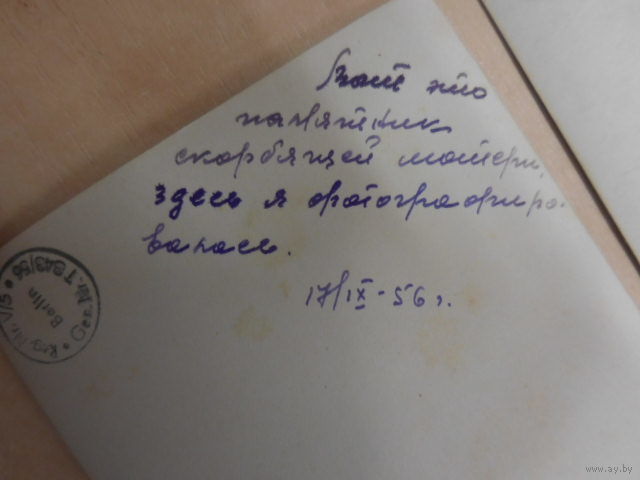 Вот это
памятник
скорбящей матери,
здесь я фотографиро-
валась.
17/IX-56 г.
Berlin
Gen. Nr. T 943/56
Reg. Nr. V/5
www.ay.by